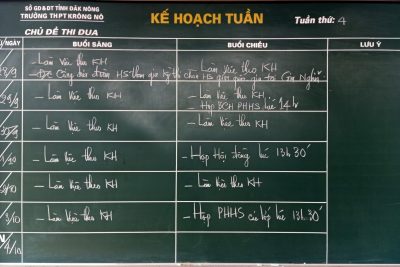 SỞ GD&ĐT TỈNH ĐĂK NÔNG
TRƯỜNG THPT KRÔNG NÔ
KẾ HOẠCH TUẦN
Tuần thứ: 4
CHỦ ĐỀ THI ĐUA
/NGÀY
BUỔI SÁNG
BUỔI CHIỀU
LƯU Ý
28/9
- Làm việc theo KH
- Làm việc theo KH
HS tham gia kỳ thi chọn HS giỏi quốc gia tại Gia Nghĩa
29/9
- Làm việc theo KH
- Làm việc theo KH
- Họp BCH PHHS lúc 14h
30/9
- Làm việc theo KH
- Làm việc theo KH
1/10
- Làm việc theo KH
- Họp Hội đồng lúc 13h30'
2/10
- Làm việc theo KH
- Làm việc theo KH
3/10
- Làm việc theo KH
- Họp PHHS các lớp lúc 13h30'
4/10